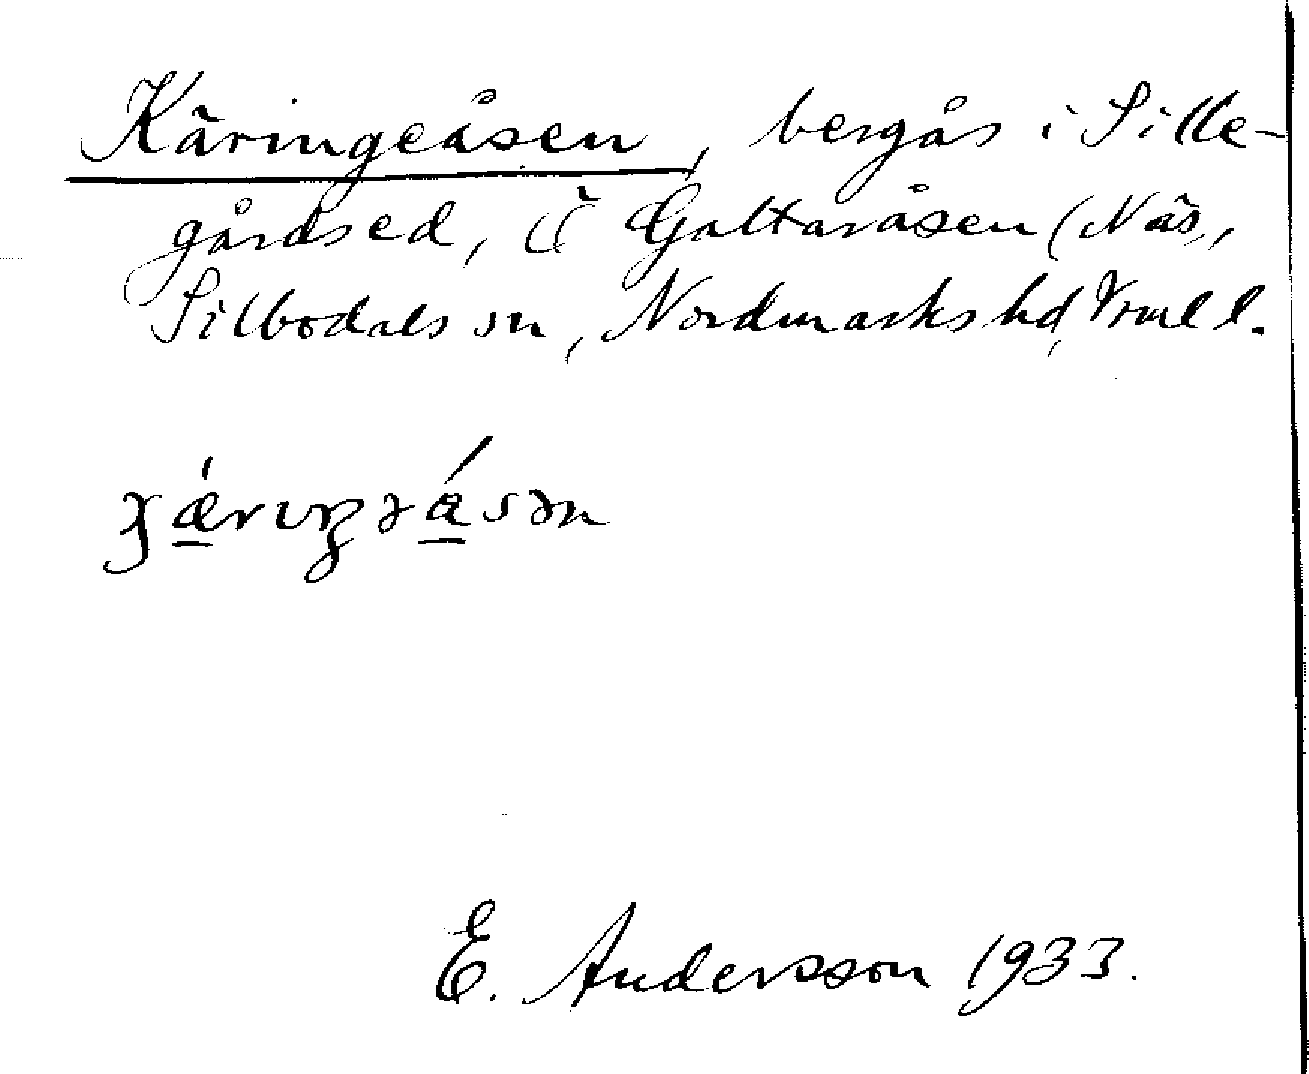 Käringeåsen, bergås i Sille-
gårdsed, Ö Galtaråsen (Näs,,
Silbodals sn, Nordmarks hd, Vrml l.
E. Andersson 1933.